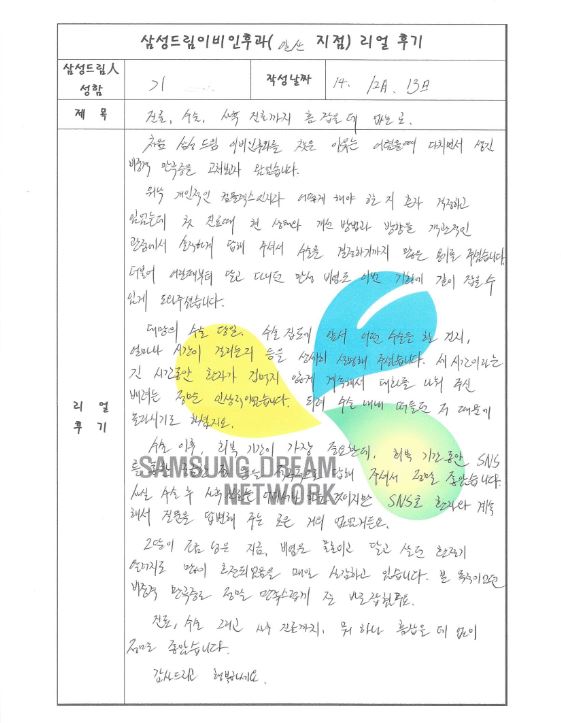 삼성드림이비인후과(일산 지점) 리얼 후기
삼성드림人
성함
기
작성날짜
14. 12月. 13日
제 목
진료, 수술, 사후 진료까지 흠 잡을 데 없는 곳.
처음 삼성드림 이비인후과를 찾은 이유는 어렸을때 다치면서 생긴
비중격 만곡증을 고쳐보고자 왔었습니다.
워낙 개인적인 컴플렉스인지라 어떻게 해야 할 지 혼자 걱정하고
있었는데 첫 진료때 현 상태와 개선 방법과 방향을 객관적인
관점에서 솔직하게 답해 주셔서 수술을 결정하기까지 많은 용기를 주셨습니다.
더불어 어렸을때부터 달고 다니던 만성 비염도 이번 기회에 같이 잡을 수
있게 도와주셨습니다.
대망의 수술 당일. 수술 집도에 앞서 어떤 수술을 할 건지,
얼마나 시간이 걸리는지 등을 상세히 설명해 주셨습니다. 세 시간이라는
긴 시간동안 환자가 겁먹지 않게 계속해서 대화를 나눠 주신
배려는 정말 인상적이었습니다. 되려 수술 내내 떠들던 저 때문에
힘드시기도 하셨겠지요.
리 얼
후 기
수술 이후, 회복 기간이 가장 중요한데, 회복 기간동안 SNS
를 통해 답해 주셔서 정말 좋았습니다.
사실 수술 후 것이지만 SNS로 환자와 계속
해서 질문을 답변해 주는 곳은 거의 없었거든요.
SAMSUNG DREAM
NETWORK
2달이 조금 넘은 지금, 비염을 꼬리표처럼 달고 살던 환자가
많이 호전되었음을 매일 실감하고 있습니다. 본 목적이었던
비중격 만곡증도 정말 만족스럽게 잘 바로잡혔구요.
진료, 수술 그리고 사후 진료까지. 뭐 하나 흠잡을 데 없이
정말로 좋았습니다.
감사드리고 행복하세요.